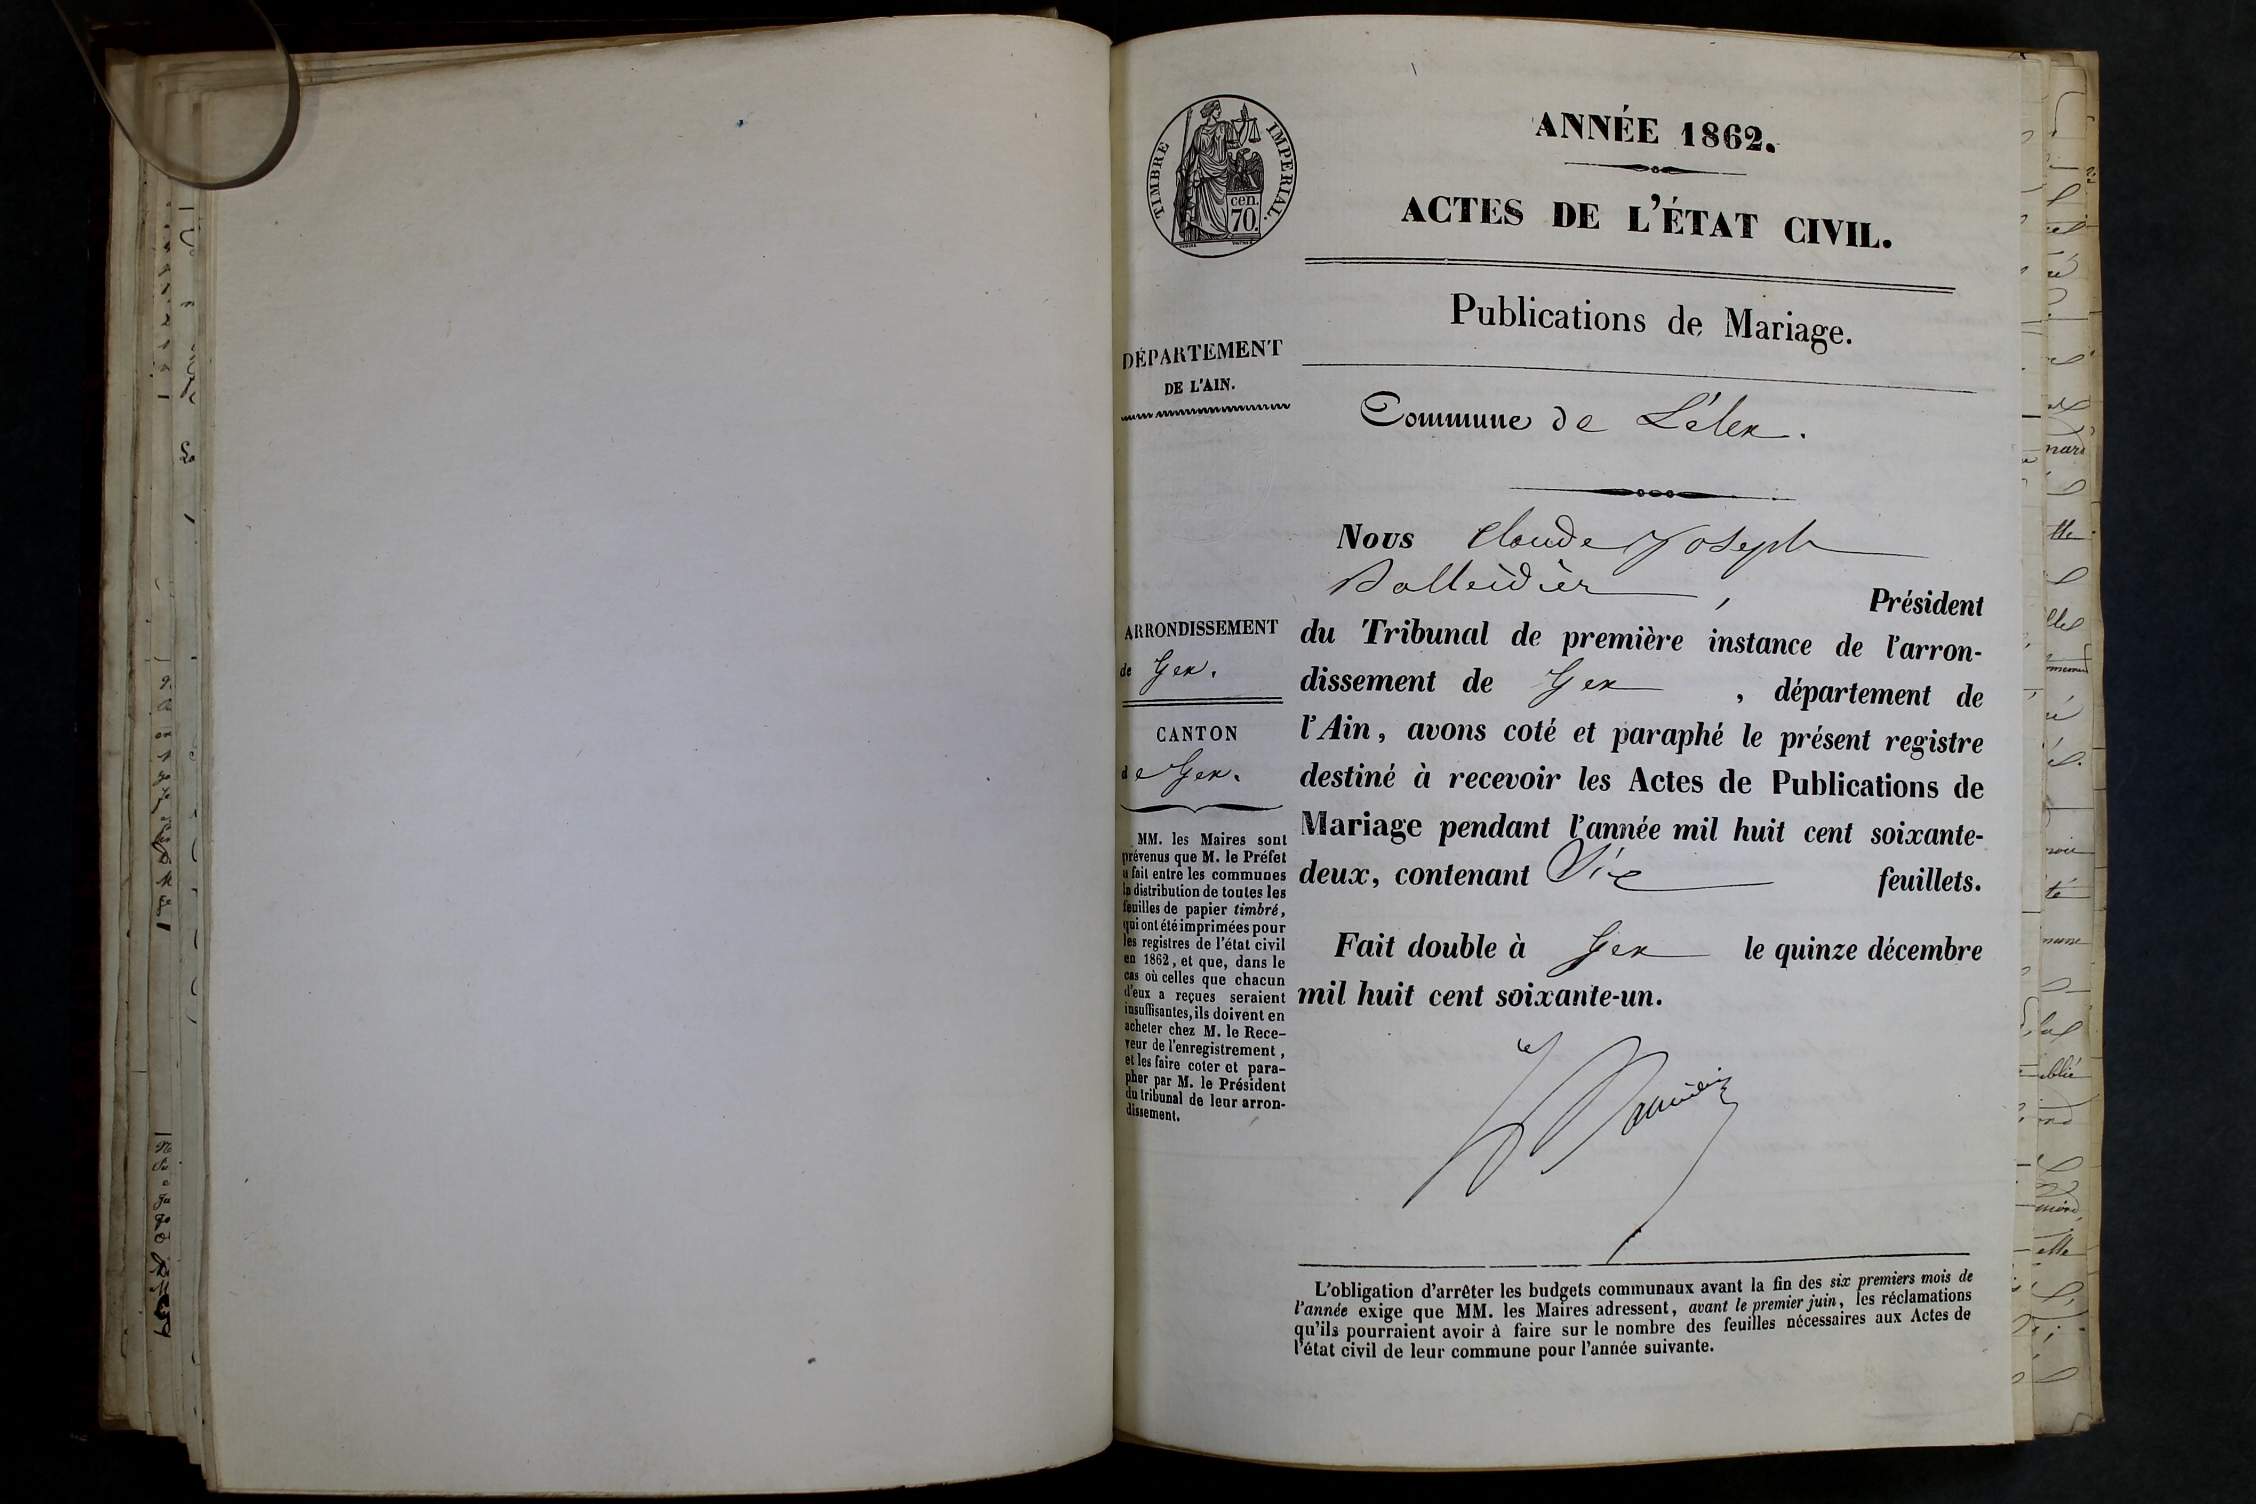 TIMBRE IMPERIAL.
cen.
70.
ANNÉE 1862.
ACTES DE L'ÉTAT CIVIL.
Publications de Mariage.
DÉPARTEMENT
DE L'AIN.
Commune de Lélex.
Nous Claude Joseph
, Président
ARRONDISSEMENT
de Gex.
CANTON
de Gex.
du Tribunal de première instance de l'arron-
dissement de Gex , département de
l'Ain, avons coté et paraphé le présent registre
destiné à recevoir les Actes de Publications de
Mariage pendant l'année mil huit cent soixante-
deux, contenant Six feuillets.
Fait double à Gex le quinze décembre
mil huit cent soixante-un.
MM. les Maires sont
prévenus que M. le Préfet
a fait entre les communes
la distribution de toutes les
feuilles de papier timbré,
qui ont été imprimées pour
les registres de l'état civil
en 1862, et que, dans le
cas où celles que chacun
d'eux a reçues seraient
insuffisantes, ils doivent en
acheter chez M. le Rece-
veur de l'enregistrement,
et les faire coter et para-
pher par M. le Président
du tribunal de leur arron-
dissement.
L'obligation d'arrêter les budgets communaux avant la fin des six premiers mois de
l'année exige que MM. les Maires adressent, avant le premier juin, les réclamations
qu'ils pourraient avoir à faire sur le nombre des feuilles nécessaires aux Actes de
l'état civil de leur commune pour l'année suivante.